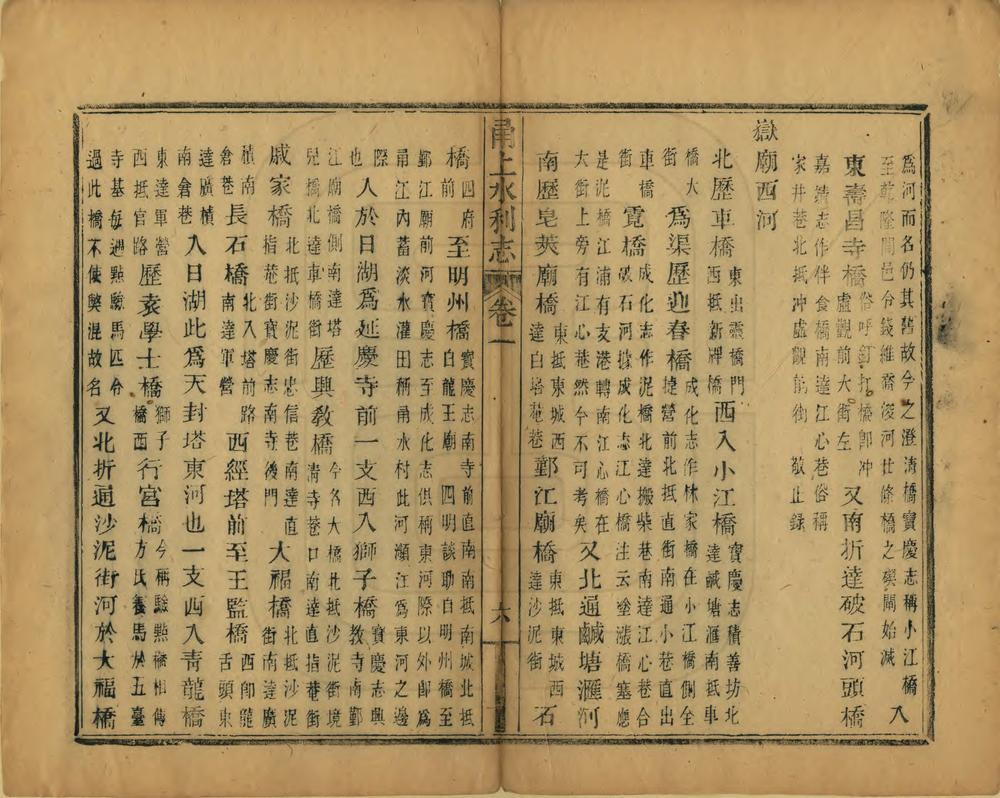 為河而名仍其舊故今之澄清橋寶慶志稱小江橋入
至乾隆間邑令錢維喬浚河廿條橋之碶閘始滅
東壽昌寺橋俗呼釘打橋卽冲
虛觀前大街左又南折達破石河頭橋
嘉靖志作伴食橋南達江心巷俗稱
家井巷北抵冲虛觀前街敬止錄
獄廟西河
北歷車橋東出靈橋門
西抵新牌橋西入小江橋寶慶志積善坊北
達鹹塘滙南抵車
橋大為渠歷迎春橋成化志作林家橋在小江橋側全
街小捷營前北抵直街南通小巷直出
車橋霓橋成化志作泥橋北達搬柴巷南達江心巷合
街破石河據成化志江心橋注云塗漲橋塞廳
是泥橋江浦有支港轉南江心橋在
大街上旁有江心巷然今不可考矣又北通鹹塘滙河
南歷皂莢廟橋東抵東城西
達白塔巷鄞江廟橋東抵東城西
達沙泥街石
甬上水利志 卷一 六
橋四府
前至明州橋寶慶志南寺前直南南抵南城北抵
白龍王廟 四明談助自明州橋至
鄞江廟前河寶慶志至成化志俱稱東河際以外卽為
甬江內蓄淡水灌田稱甬水村此河瀕江為東河之邊
際
也人於日湖為延慶寺前一支西入獅子橋寶慶志興
教寺南鄞
江廟橋側南達塔
兒橋北達車橋街歷興教橋今名大橋北抵沙泥街境
清寺巷口南達直指菴街
戚家橋北抵沙泥街忠信巷南達直
指菴街寶慶志南寺後門大福橋北抵沙泥
街南達廣
積南
倉巷長石橋北入塔前路
南達軍營西經塔前至王監橋西卽龍
舌頭東
達廣積
南倉巷入日湖此為天封塔東河也一支西入青龍橋
東達軍營
西抵官路歷袁學士橋獅子
橋西行宮橋今稱驗點橋相傳
方氏養馬於五臺
寺基每週點驗馬匹令
過此橋不使獘混故名又北折通沙泥街河於大福橋